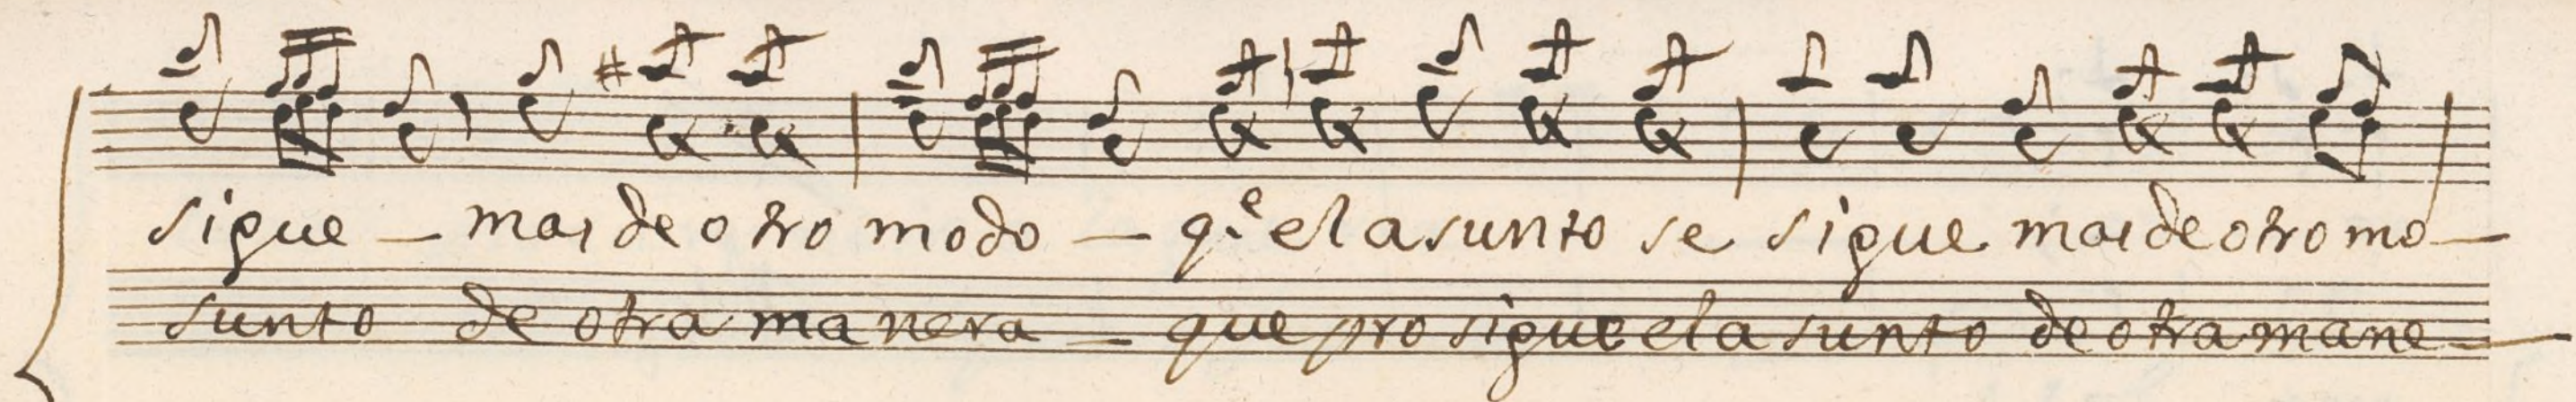 sigue — mas de otro modo — q.e el asunto se sigue mas de otro mo —
sunto de otra manera — que prosigue el asunto de otra mane —